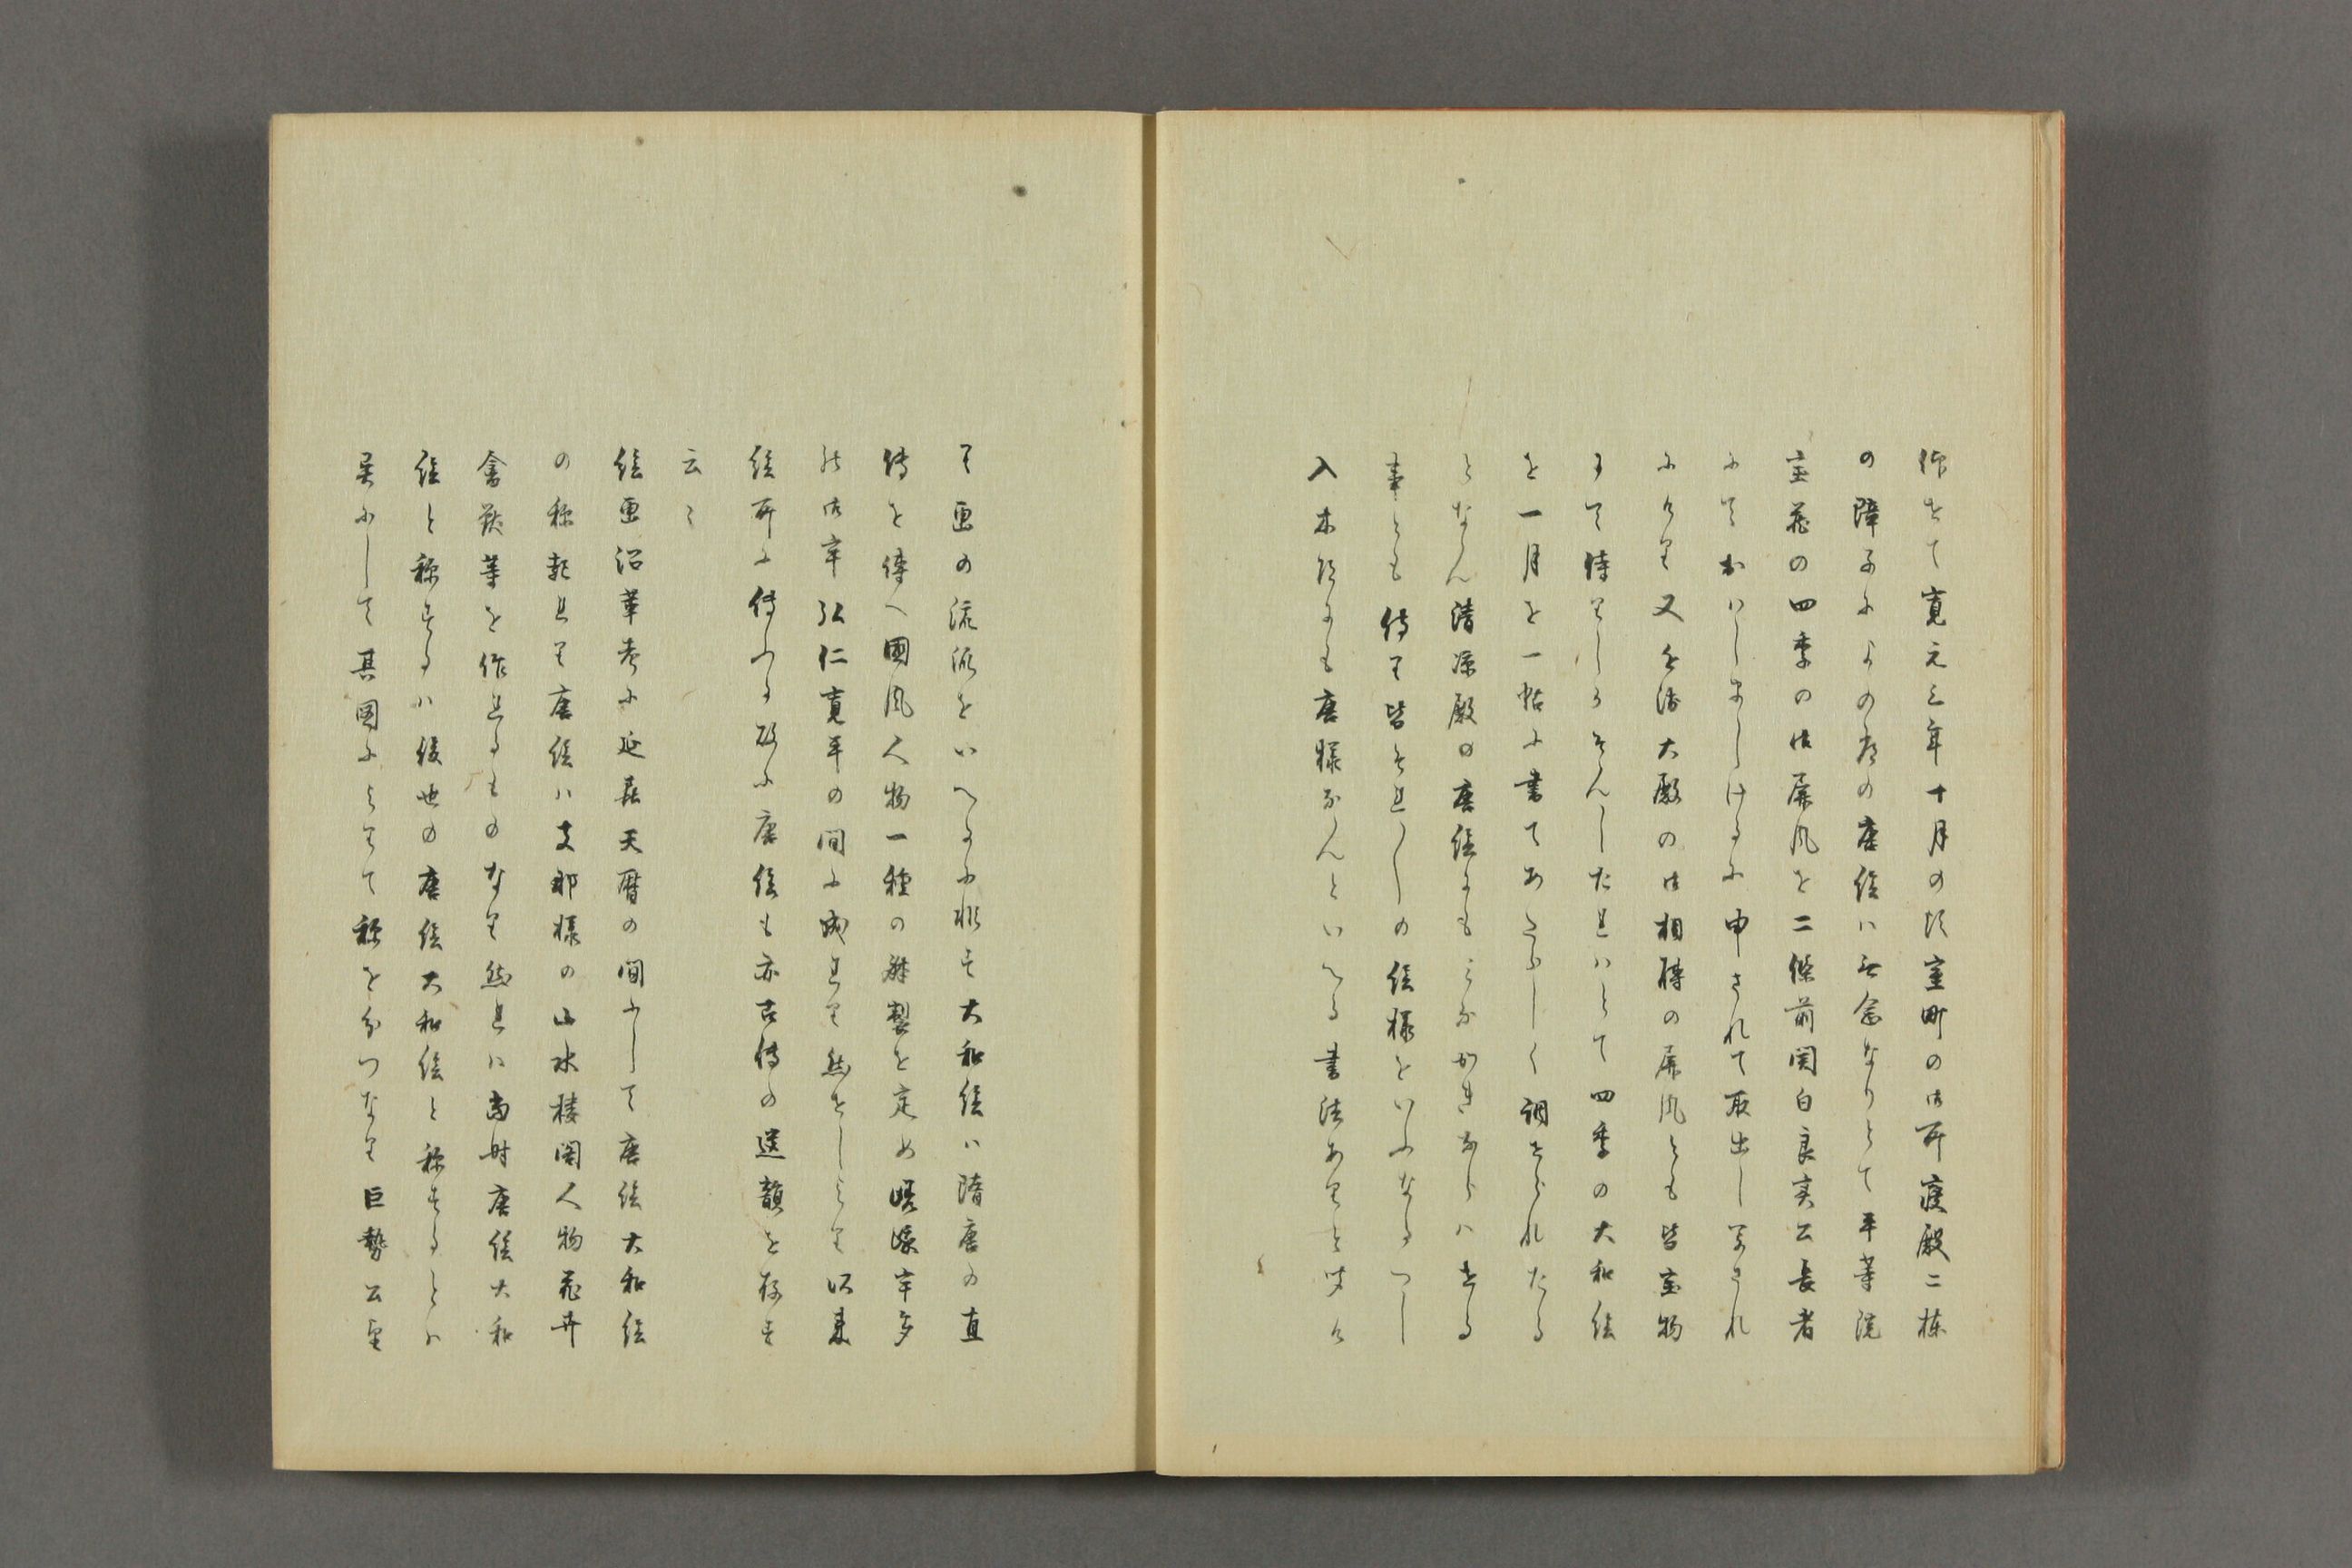 作をて寛元三年十月の頃室町の御所寝殿二棟
の障子に の唐絵ハ無念なりとて平等院
宝蔵の四季の御屏風を二條前関白良実公長者
にておハしましけるに申されて取出し写され
にけり又 大殿の御相傳の屏風とも皆宝物
にて侍りしうせんしたれハとて四季の大和絵
を一月を一帖に書てあたらしく調せられたる
となん清涼殿の唐絵にも かきならハせる
事とも侍り皆それ〳〵の絵様をいふなるへし
入木抄にも唐様なんといへる書法ありと 
て画の流派をいへるに非す大和絵ハ隋唐の直
傳を傳へ國風人物一種の躰製を定め嵯峨宇多
の御宇弘仁寛平の間に成れり然せしより以来
絵所に傳ふる故に唐絵も亦古傳の遺韻を存す
云々
絵画沿革考に延喜天暦の間にして唐絵大和絵
の称起れり唐絵ハ支那様の山水楼閣人物花卉
禽獣等を作れるものなり然れハ当時唐絵大和
絵と称するハ後世の唐絵大和絵と称するとハ
異にして其図によりて称を分つなり巨勢公望